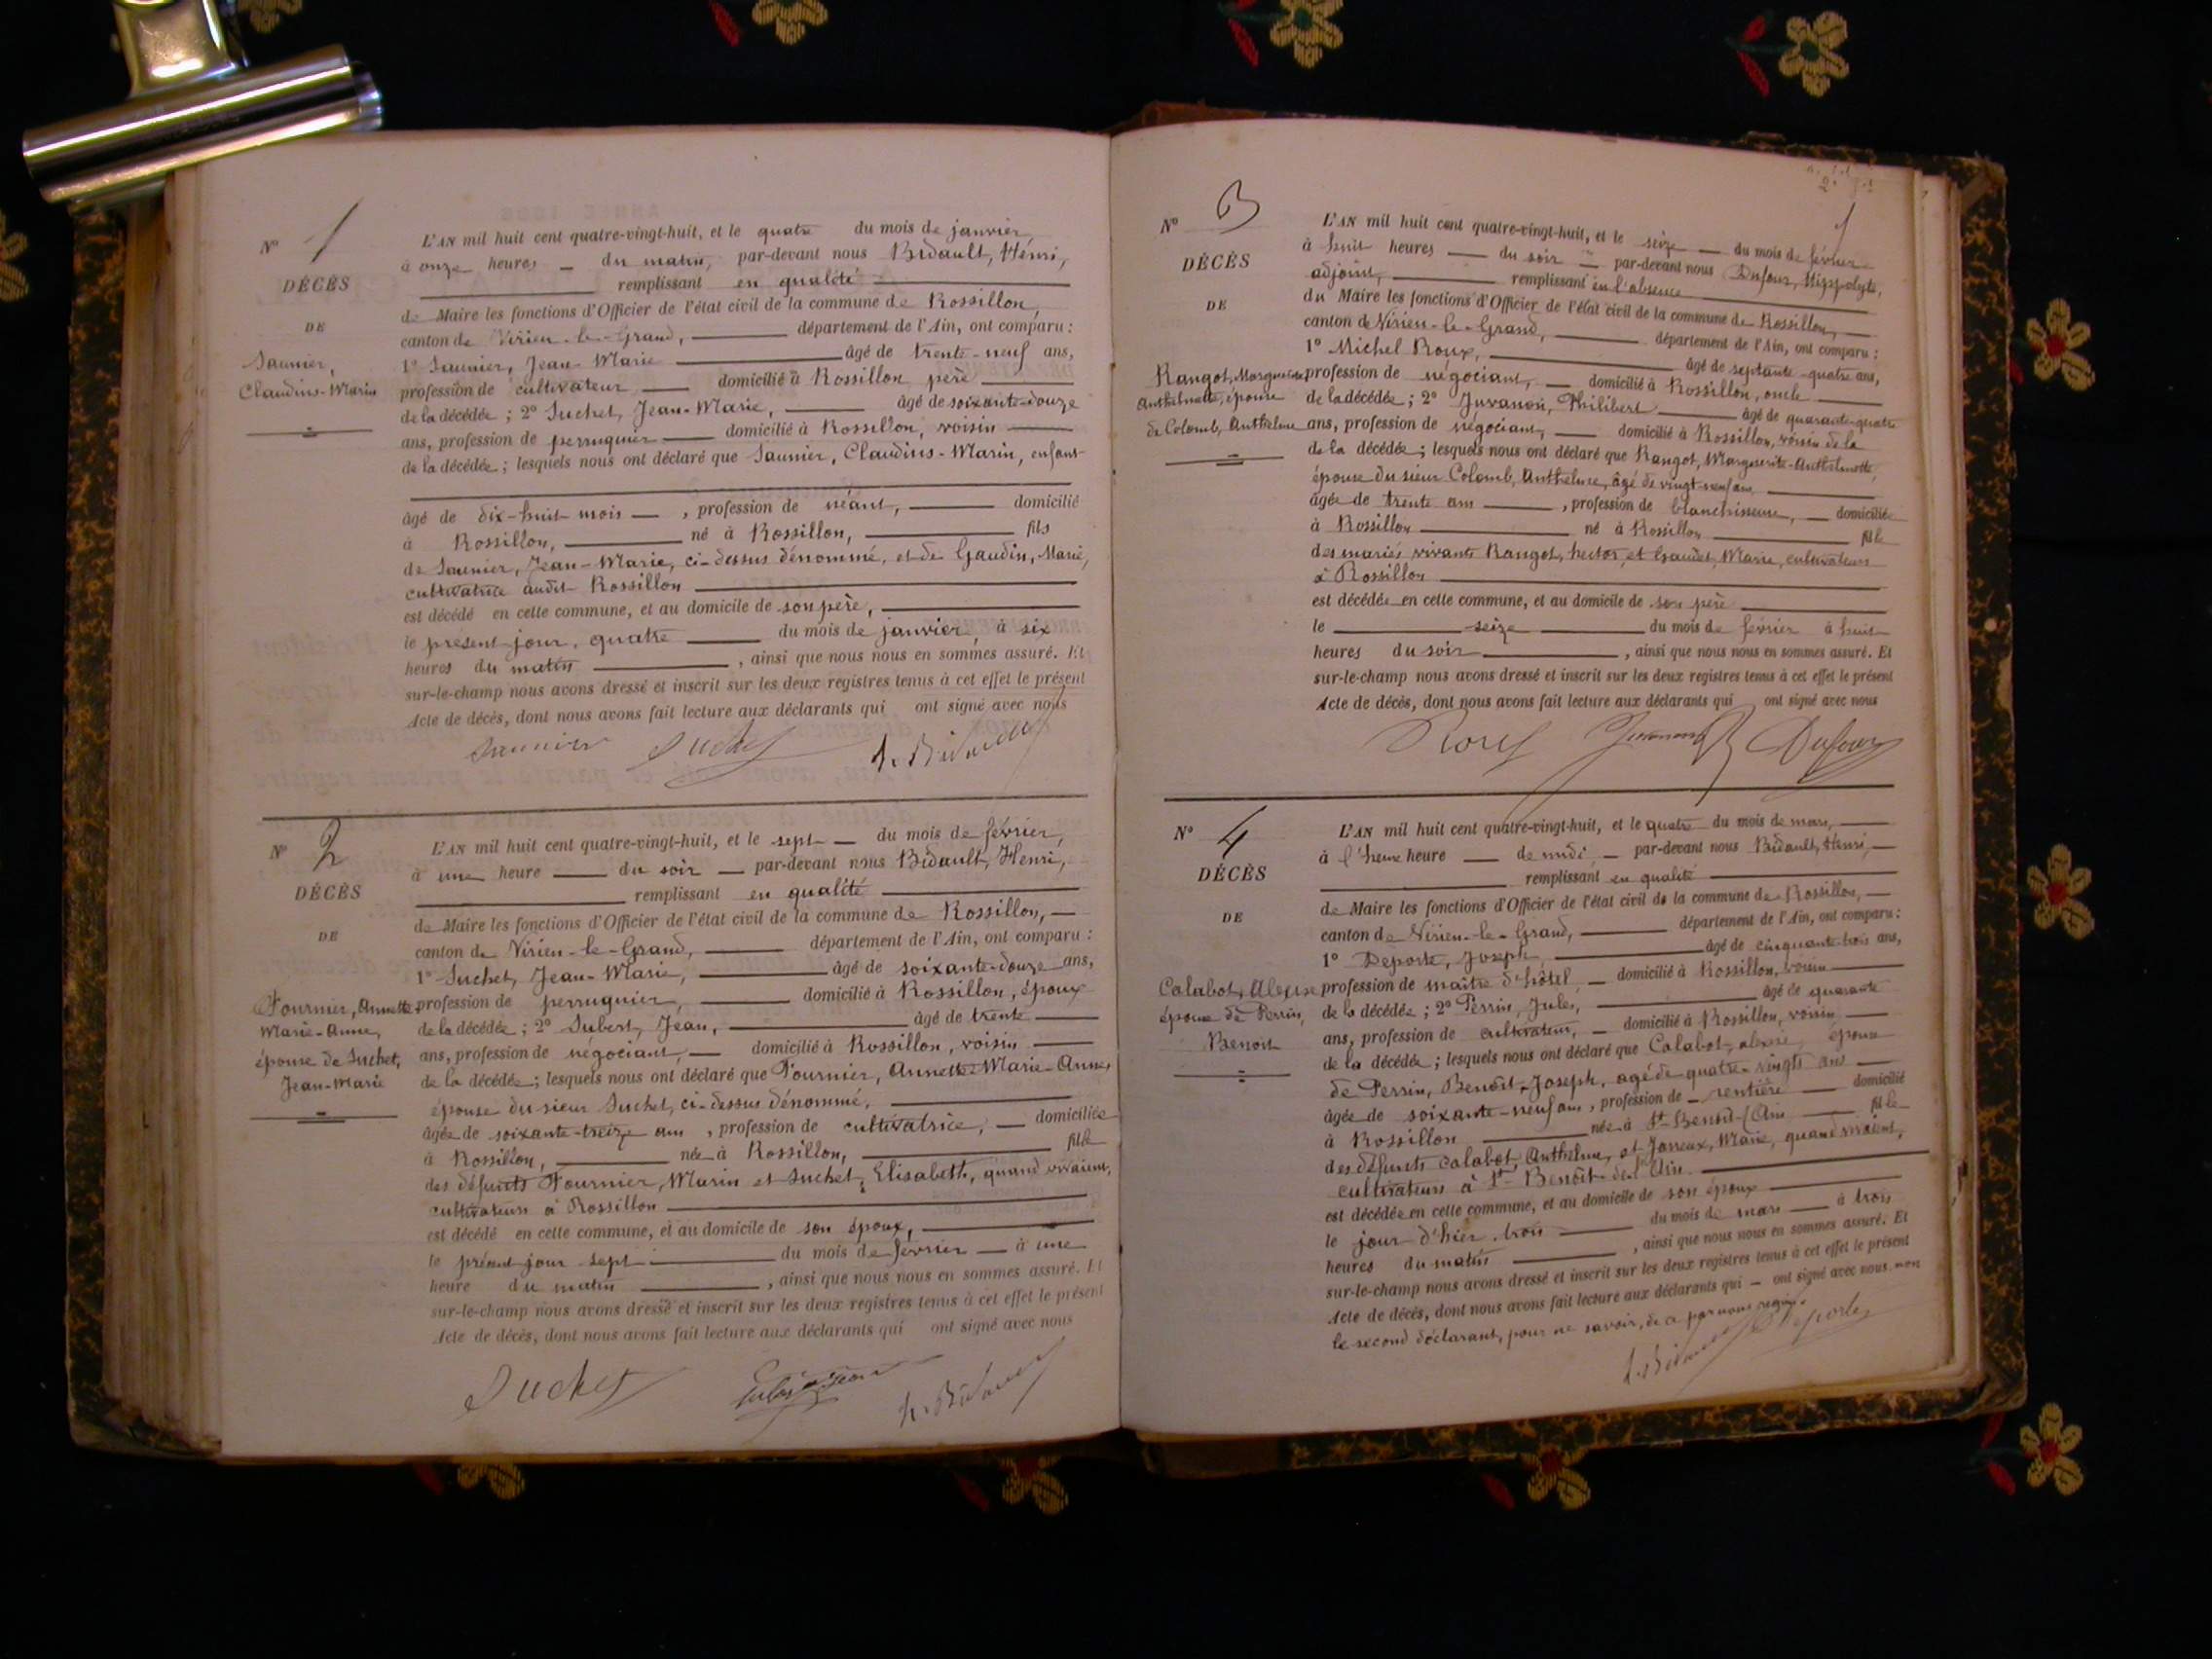 Nº 1
DÉCÈS
DE
Saunier,
Claudius-Marin
L'AN mil huit cent quatre-vingt-huit, et le quatre du mois de janvier,
à onze heures du matin, par-devant nous Bidault, Hénri,
remplissant en qualité
de Maire les fonctions d'Officier de l'état civil de la commune de Rossillon,
canton de Virieu-le-Grand, département de l'Ain, ont comparu :
1º Saunier, Jean-Marie âgé de trente-neuf ans,
profession de cultivateur domicilié à Rossillon père
de la décédée ; 2º Suchet, Jean-Marie, âgé de soixante-douze
ans, profession de perruquier domicilié à Rossillon, voisin
de la décédée ; lesquels nous ont déclaré que Saunier, Claudius-Marin, enfant
âgé de dix-huit mois , profession de néant, domicilié
à Rossillon, né à Rossillon, fils
de Saunier, Jean-Marie, ci-dessus dénommé, et de Gaudin, Marie,
cultivatrice audit Rossillon
est décédé en cette commune, et au domicile de son père,
le présent jour, quatre du mois de janvier, à six
heures du matin , ainsi que nous nous en sommes assuré. Et
sur-le-champ nous avons dressé et inscrit sur les deux registres tenus à cet effet le présent
Acte de décès, dont nous avons fait lecture aux déclarants qui ont signé avec nous
Saunier Suchet h. Bidault
Nº 2
DÉCÈS
DE
Fournier, Annette
Marie-Anne,
épouse de Suchet,
Jean-Marie
L'AN mil huit cent quatre-vingt-huit, et le sept du mois de février,
à une heure du soir par-devant nous Bidault, Henri,
remplissant en qualité
de Maire les fonctions d'Officier de l'état civil de la commune de Rossillon,
canton de Virieu-le-Grand, département de l'Ain, ont comparu :
1º Suchet, Jean-Marie, âgé de soixante-douze ans,
profession de perruquier, domicilié à Rossillon, époux
de la décédée ; 2º Jubert, Jean, âgé de trente
ans, profession de négociant, domicilié à Rossillon, voisin
de la décédée ; lesquels nous ont déclaré que Fournier, Annette-Marie-Anne,
épouse du sieur Suchet, ci-dessus dénommé,
âgée de soixante-treize ans , profession de cultivatrice, domiciliée
à Rossillon, née à Rossillon, fille
des défunts Fournier, Marin et Suchet, Elisabeth, quand vivaient,
cultivateurs à Rossillon
est décédé en cette commune, et au domicile de son époux,
le présent jour sept du mois de février à une
heure du matin , ainsi que nous nous en sommes assuré. Et
sur-le-champ nous avons dressé et inscrit sur les deux registres tenus à cet effet le présent
Acte de décès, dont nous avons fait lecture aux déclarants qui ont signé avec nous
Suchet h. Bidault
1
Nº 3
DÉCÈS
DE
Rangot, Marguerite
Anthelmette, épouse
de Colomb, Anthelme
L'AN mil huit cent quatre-vingt-huit, et le seize du mois de février
à huit heures du soir par-devant nous Dufour, Hippolyte,
adjoint, remplissant en l'absence
du Maire les fonctions d'Officier de l'état civil de la commune de Rossillon,
canton de Virieu-le-Grand, département de l'Ain, ont comparu :
1º Michel Roux, âgé de septante-quatre ans,
profession de négociant, domicilié à Rossillon, oncle
de la décédée ; 2º Juvanon, Philibert âgé de quarante-quatre
ans, profession de négociant, domicilié à Rossillon, voisin de la
de la décédée ; lesquels nous ont déclaré que Rangot, Marguerite-Anthelmette,
épouse du sieur Colomb, Anthelme, âgé de vingt-neuf ans,
âgée de trente ans , profession de blanchisseuse, domiciliée
à Rossillon né à Rossillon fille
des mariés vivants Rangot, hector, et Gaudet, Marie, cultivateurs
à Rossillon
est décédée en cette commune, et au domicile de son père
le seize du mois de février à huit
heures du soir , ainsi que nous nous en sommes assuré. Et
sur-le-champ nous avons dressé et inscrit sur les deux registres tenus à cet effet le présent
Acte de décès, dont nous avons fait lecture aux déclarants qui ont signé avec nous
Roux Juvanon Dufour
Nº 4
DÉCÈS
DE
Calabot, Alexise
épouse de Perrin,
Benoit
L'AN mil huit cent quatre-vingt-huit, et le quatre du mois de mars,
à l'heure heure de midi, par-devant nous Bidault, Hénri,
remplissant en qualité
de Maire les fonctions d'Officier de l'état civil de la commune de Rossillon,
canton de Virieu-le-Grand, département de l'Ain, ont comparu :
1º Deporte, Joseph, âgé de cinquante-trois ans,
profession de maître d'hôtel, domicilié à Rossillon, voisin
de la décédée ; 2º Perrin, Jules, âgé de quarante
ans, profession de cultivateur, domicilié à Rossillon, voisin
de la décédée ; lesquels nous ont déclaré que Calabot, alexise, épouse
de Perrin, Benoît-Joseph, agé de quatre-vingts ans
âgée de soixante-neuf ans, profession de rentière domicilié
à Rossillon née à St-Benoit-(Ain fille
des défunts Calabot Anthelme, et Jarreux, Marie, quand vivaient,
cultivateurs à St-Benoît-de l'Ain.
est décédée en cette commune, et au domicile de son époux
le jour d'hier trois du mois de mars à trois
heures du matin , ainsi que nous nous en sommes assuré. Et
sur-le-champ nous avons dressé et inscrit sur les deux registres tenus à cet effet le présent
Acte de décès, dont nous avons fait lecture aux déclarants qui ont signé avec nous non
le second déclarant, pour ne savoir, de ce par nous requis.
h. Bidault Deporte